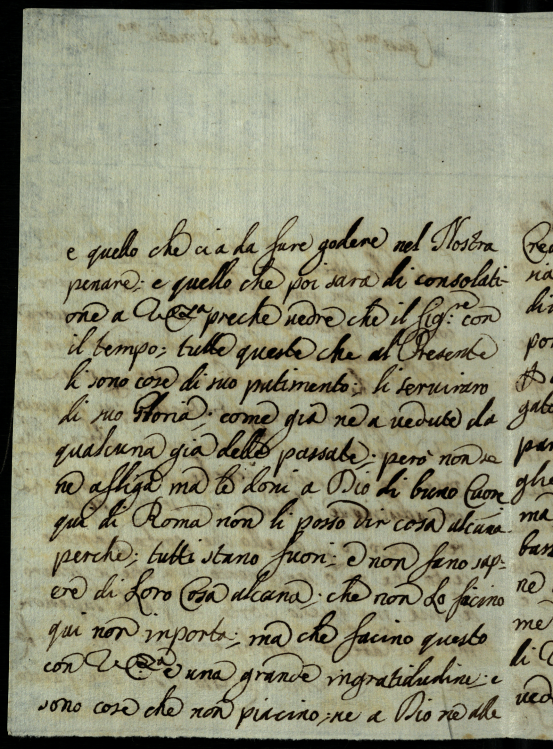 e quello che ci a da fare godere nel Nostra
penare; e quello che poi sara di consolati-
one a V. E.za preche vedre che il Sig.re con
il tempo; tutte queste che al Presente
li sono cose di suo patimento; li serviraro
di suo Gloria; come gia ne a vedute da
qualcuna gia delle passate; però non se
ne afliga; ma le doni a Dio di buno Cuore
qui di Roma non li posso dir cosa alcuna
perche; tutti stano fuori; e non fano sap-
ere di Loro Cosa alcuna; che non Lo facino
qui non inporta; ma che facino questo
con V. E.za è una grande ingratidudini; e
sono cose che non piacino; ne a Dio ne alle
Crea
na
di
por
gate
par
glie
ma
bass
ne
me
di
ved